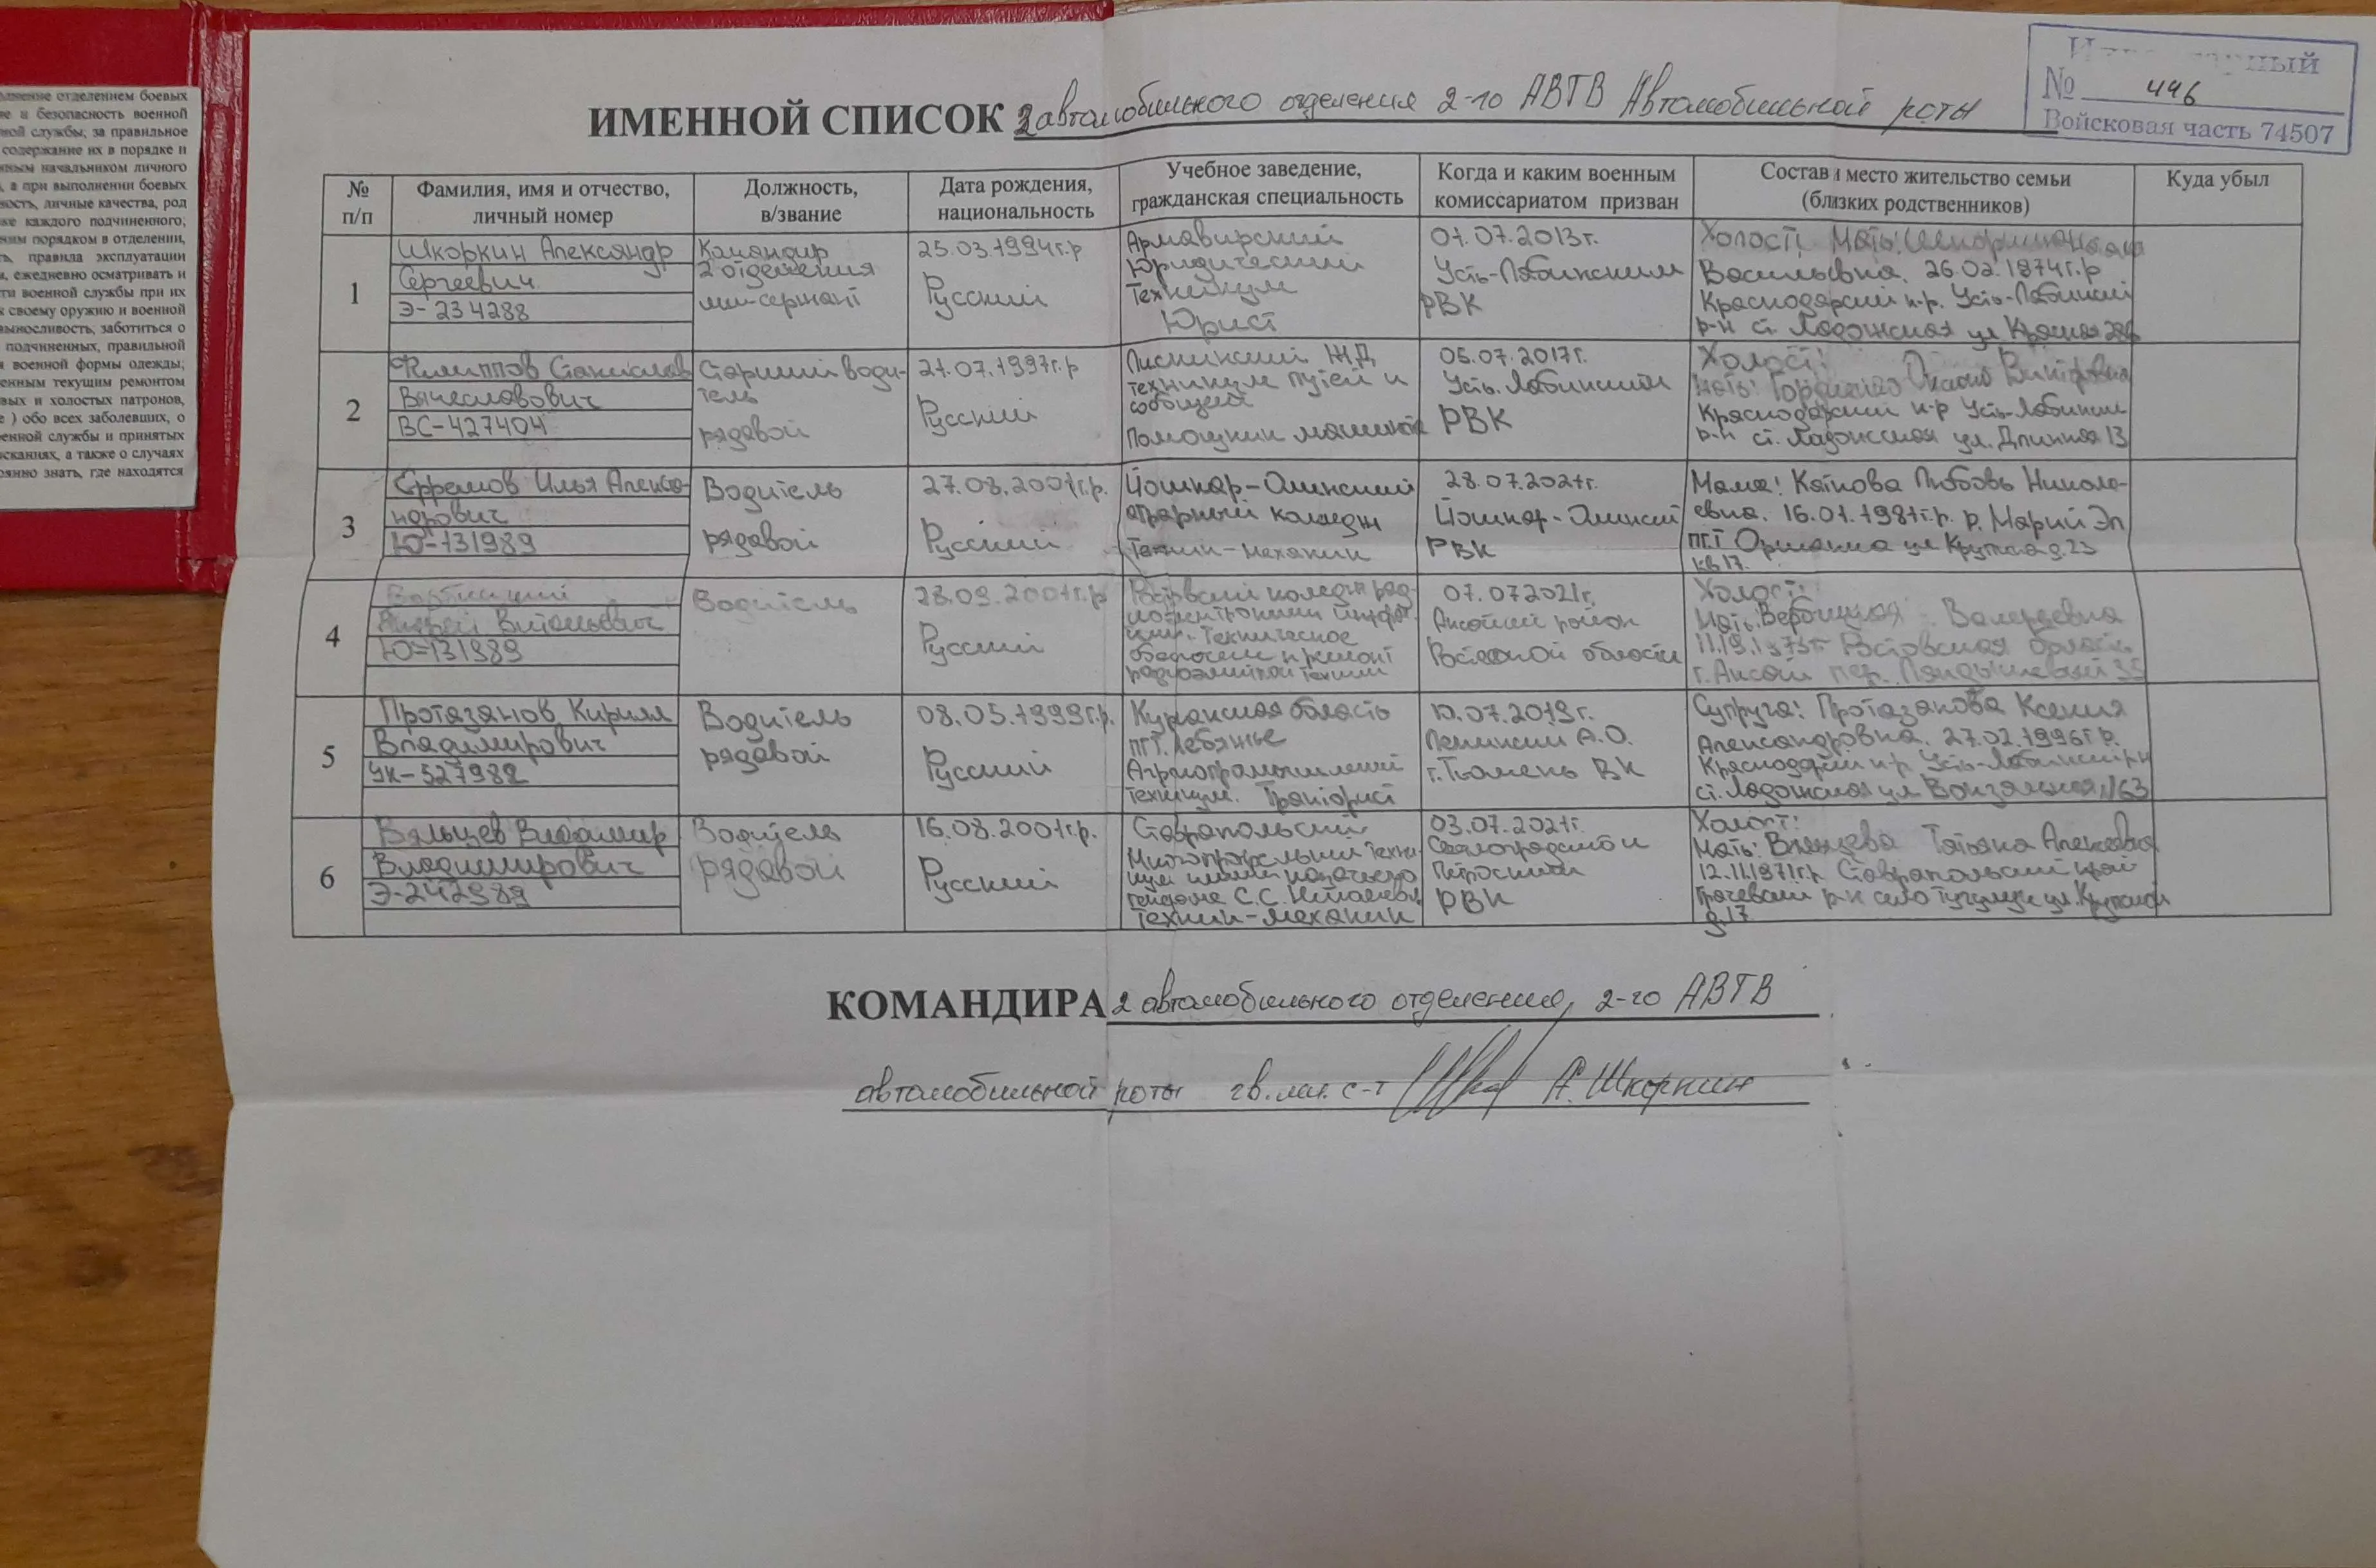 лнение отделением боевых
ие и безопасность военной
ной службы; за правильное
содержание их в порядке и
нным начальником личного
, а при выполнении боевых
ность, личные качества, род
же каждого подчиненного;
ним порядком в отделении,
ть, правила эксплуатации
и, ежедневно осматривать и
ти военной службы при их
к своему оружию и военной
выносливость, заботиться о
подчиненных, правильной
и военной формы одежды;
енным текущим ремонтом
вых и холостых патронов,
е ) обо всех заболевших, о
енной службы и принятых
сканиях, а также о случаях
оянно знать, где находятся
№ 446
Войсковая часть 74507
ИМЕННОЙ СПИСОК 2 автомобильного отделения 2-го АВТВ Автомобильной роты
№ п/п
Фамилия, имя и отчество,
личный номер
Должность,
в/звание
Дата рождения,
национальность
Учебное заведение,
гражданская специальность
Когда и каким военным
комиссариатом призван
Состав и место жительство семьи
(близких родственников)
Куда убыл
1
Шкоркин Александр
Сергеевич
Э-234288
Командир
2 отделения
мл-сержант
25.03.1994г.р
Русский
Армавирский
Юридический
Техникум
Юрист
01.07.2013г.
Усть-Лабинским
РВК
Холост, Мать:
Васильевна. 26.02.1974г.р
Краснодарский к-р. Усть-Лабинский
р-н ст. Ладожская ул Красная
2
Филиппов Станислав
Вячеславович
ВС-427404
Старший води-
тель
рядовой
21.07.1997г.р
Русский
ЖД
техникум путей и
сообщей
Помощник
05.07.2017г.
Усть-Лабинским
РВК
Холост:
Мать: Викторовна
Краснодарский к-р Усть-Лабинский
р-н ст. Ладожская ул. Длинная 13
3
Ефремов Илья Алекса-
ндрович
Ю-131989
Водитель
рядовой
27.08.2001г.р.
Русский
Йошкар-Олинский
аграрный колледж
Техник-механик
28.07.2021г.
Йошкар-Олинский
РВК
Мама: Любовь Никола-
евна. 16.01.1981г.р. р. Марий Эл
пгт Оршанка ул Крупская д.23
кв 17.
4
Андрей Витальевич
Ю-131989
Водитель
28.09.2001г.р
Русский
Техническое
07.07.2021г.
район
Ростовской области
Холост:
Мать: Валерьевна
Ростовская область
г. Аксай пер. 35
5
Протазанов Кирилл
Владимирович
УК-527982
Водитель
рядовой
08.05.1999г.р.
Русский
Курганская область
пгт. Лебяжье
Агропромышленный
техникум. Тракторист
10.07.2019г.
Ленинский А.О.
г. Тюмень ВК
Супруга: Протазанова Ксения
Александровна. 27.02.1996г р.
Краснодарский к-р Усть-Лабинский р-н
ст. Ладожская ул Вокзальная, 163
6
Вяльцев Владимир
Владимирович
Э-242989
Водитель
рядовой
16.08.2001г.р.
Русский
Ставропольский
генерала С.С. Николаева
Техник-механик
03.07.2021г.
РВК
Холост:
Мать: Татьяна Алексеевна
12.11.1971г.р Ставропольский край
р-н село Тугулук ул. Крупской
д.17
КОМАНДИРА 2 автомобильного отделения, 2-го АВТВ
автомобильной роты гв. мл. с-т А. Шкоркин